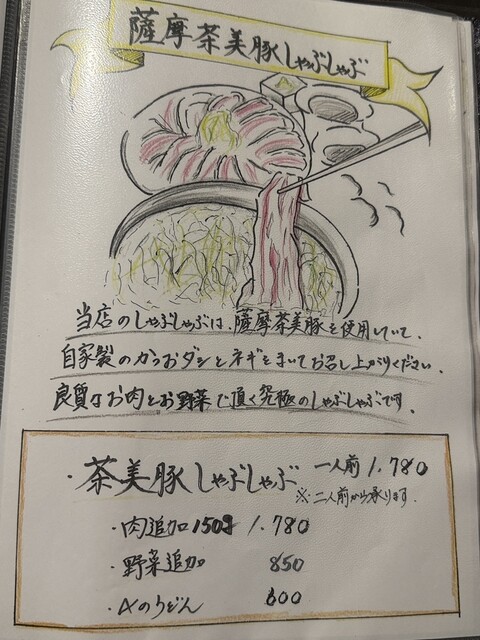 薩摩茶美豚しゃぶしゃぶ
当店のしゃぶしゃぶは、薩摩茶美豚を使用していて、
自家製のかつおダシとネギをまいてお召し上がりください。
良質なお肉とお野菜で頂く究極のしゃぶしゃぶです。
・茶美豚しゃぶしゃぶ 一人前 1,780
※二人前から承ります。
・肉追加150g 1,780
・野菜追加 850
・〆のうどん 600